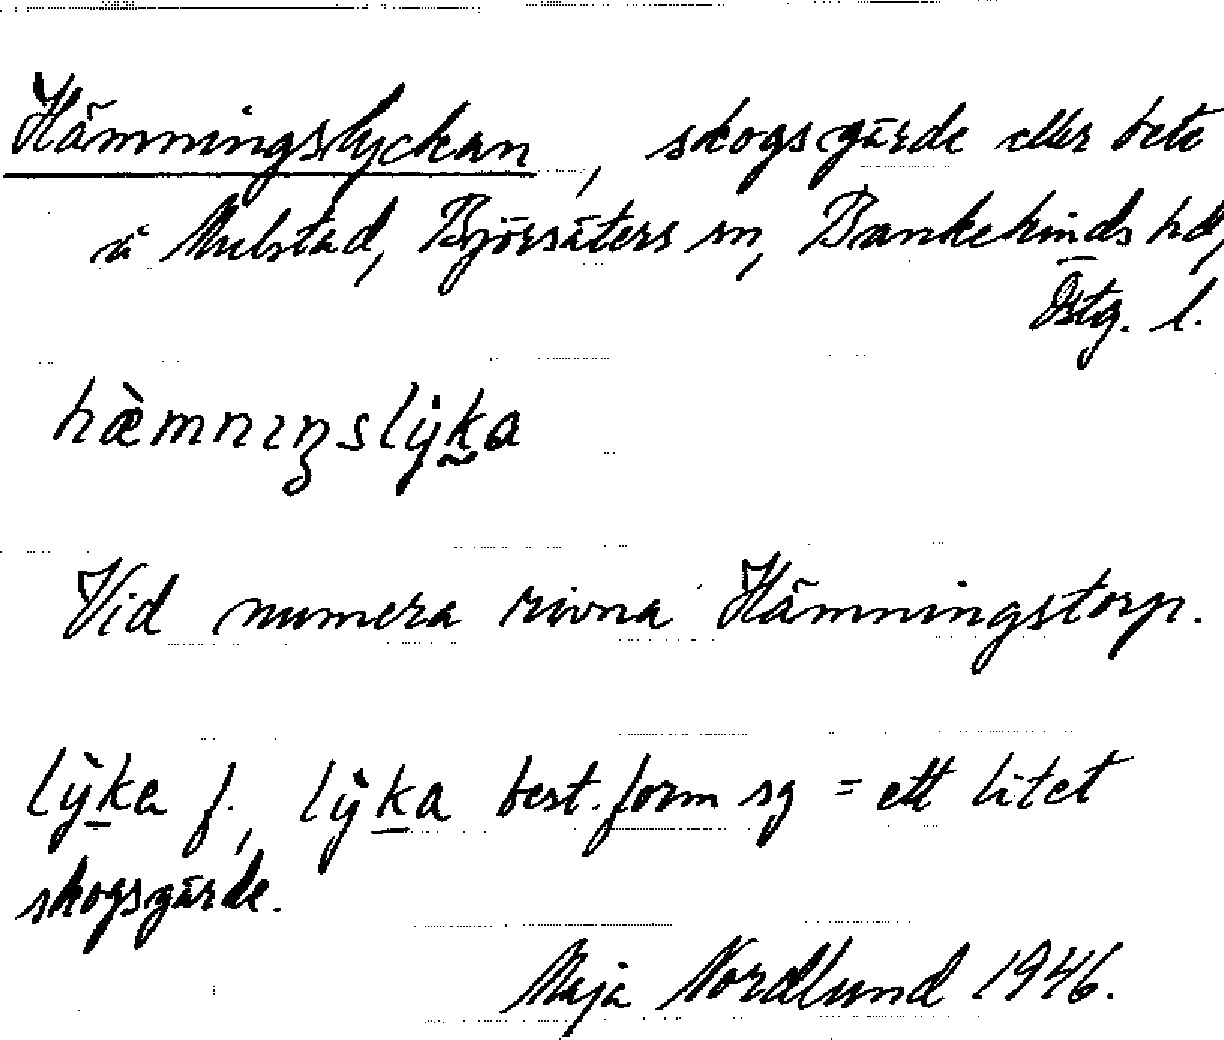 Hämningslyckan, skogsgärde eller bete
å Mulstad, Björsäters sn, Bankekinds hd,
Östg. l.
hæ̀mnıŋslẏka
Vid numera rivna Hämningstorp.
lỳka f., lỳka best. form sg = ett litet
skogsgärde.
Maja Nordlund 1946.